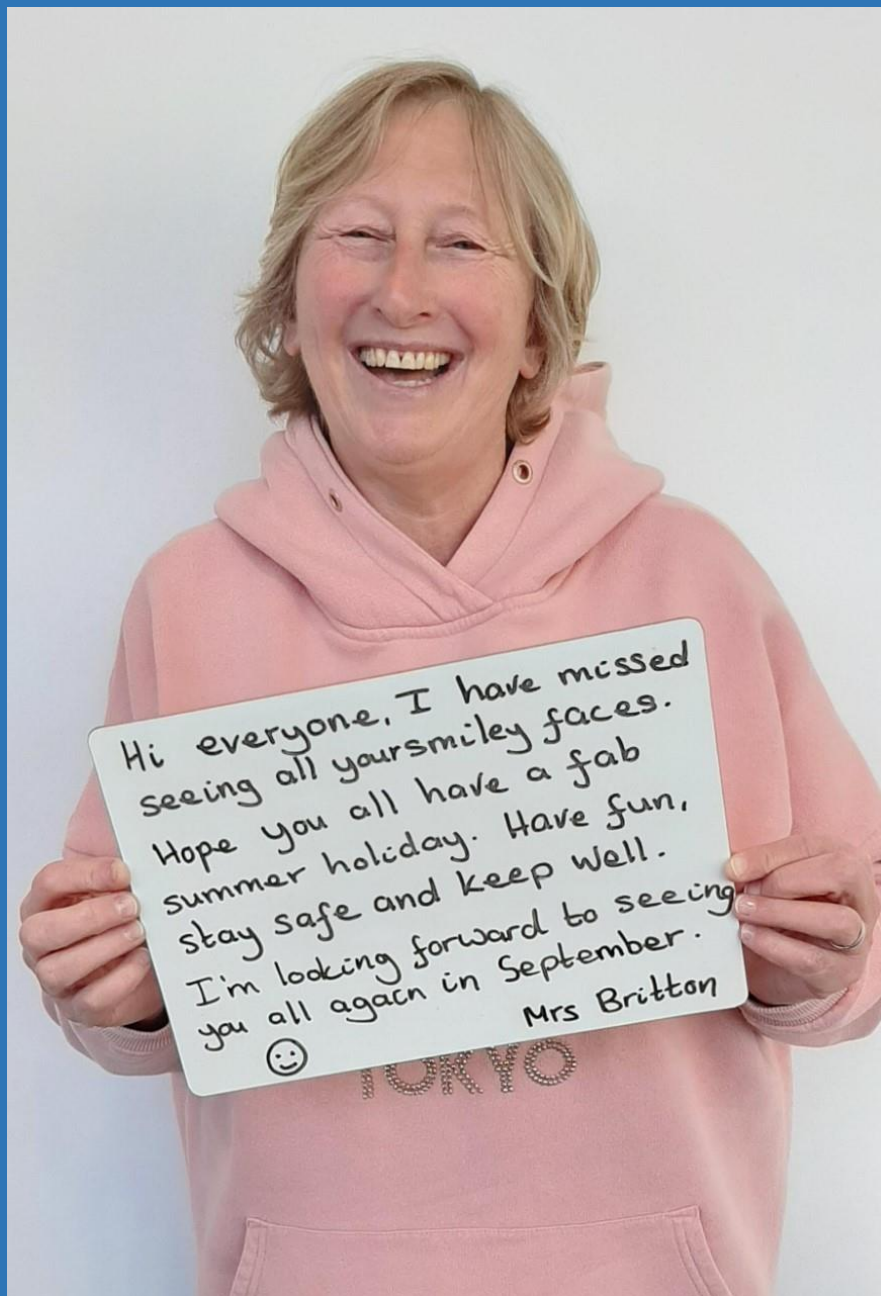 Hi everyone, I have missed
seeing all your smiley faces.
Hope you all have a fab
summer holiday. Have fun,
stay safe and keep well.
I'm looking forward to seeing
you all again in September.
Mrs Britton
TOKYO